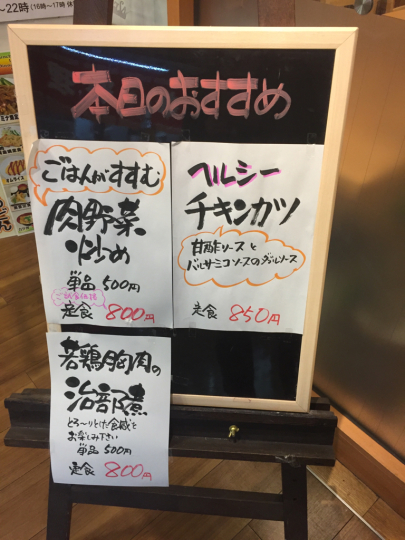 ～22時(16時～17時 休
本日のおすすめ
ごはんがすすむ
肉野菜
炒め
単品 500円
定食 800円
ヘルシー
チキンカツ
甘酢ソースと
バルサミコソースのダブルソース
定食 850円
若鶏胸肉の
治部煮
とろ〜りとした食感を
お楽しみ下さい
単品 500円
定食 800円